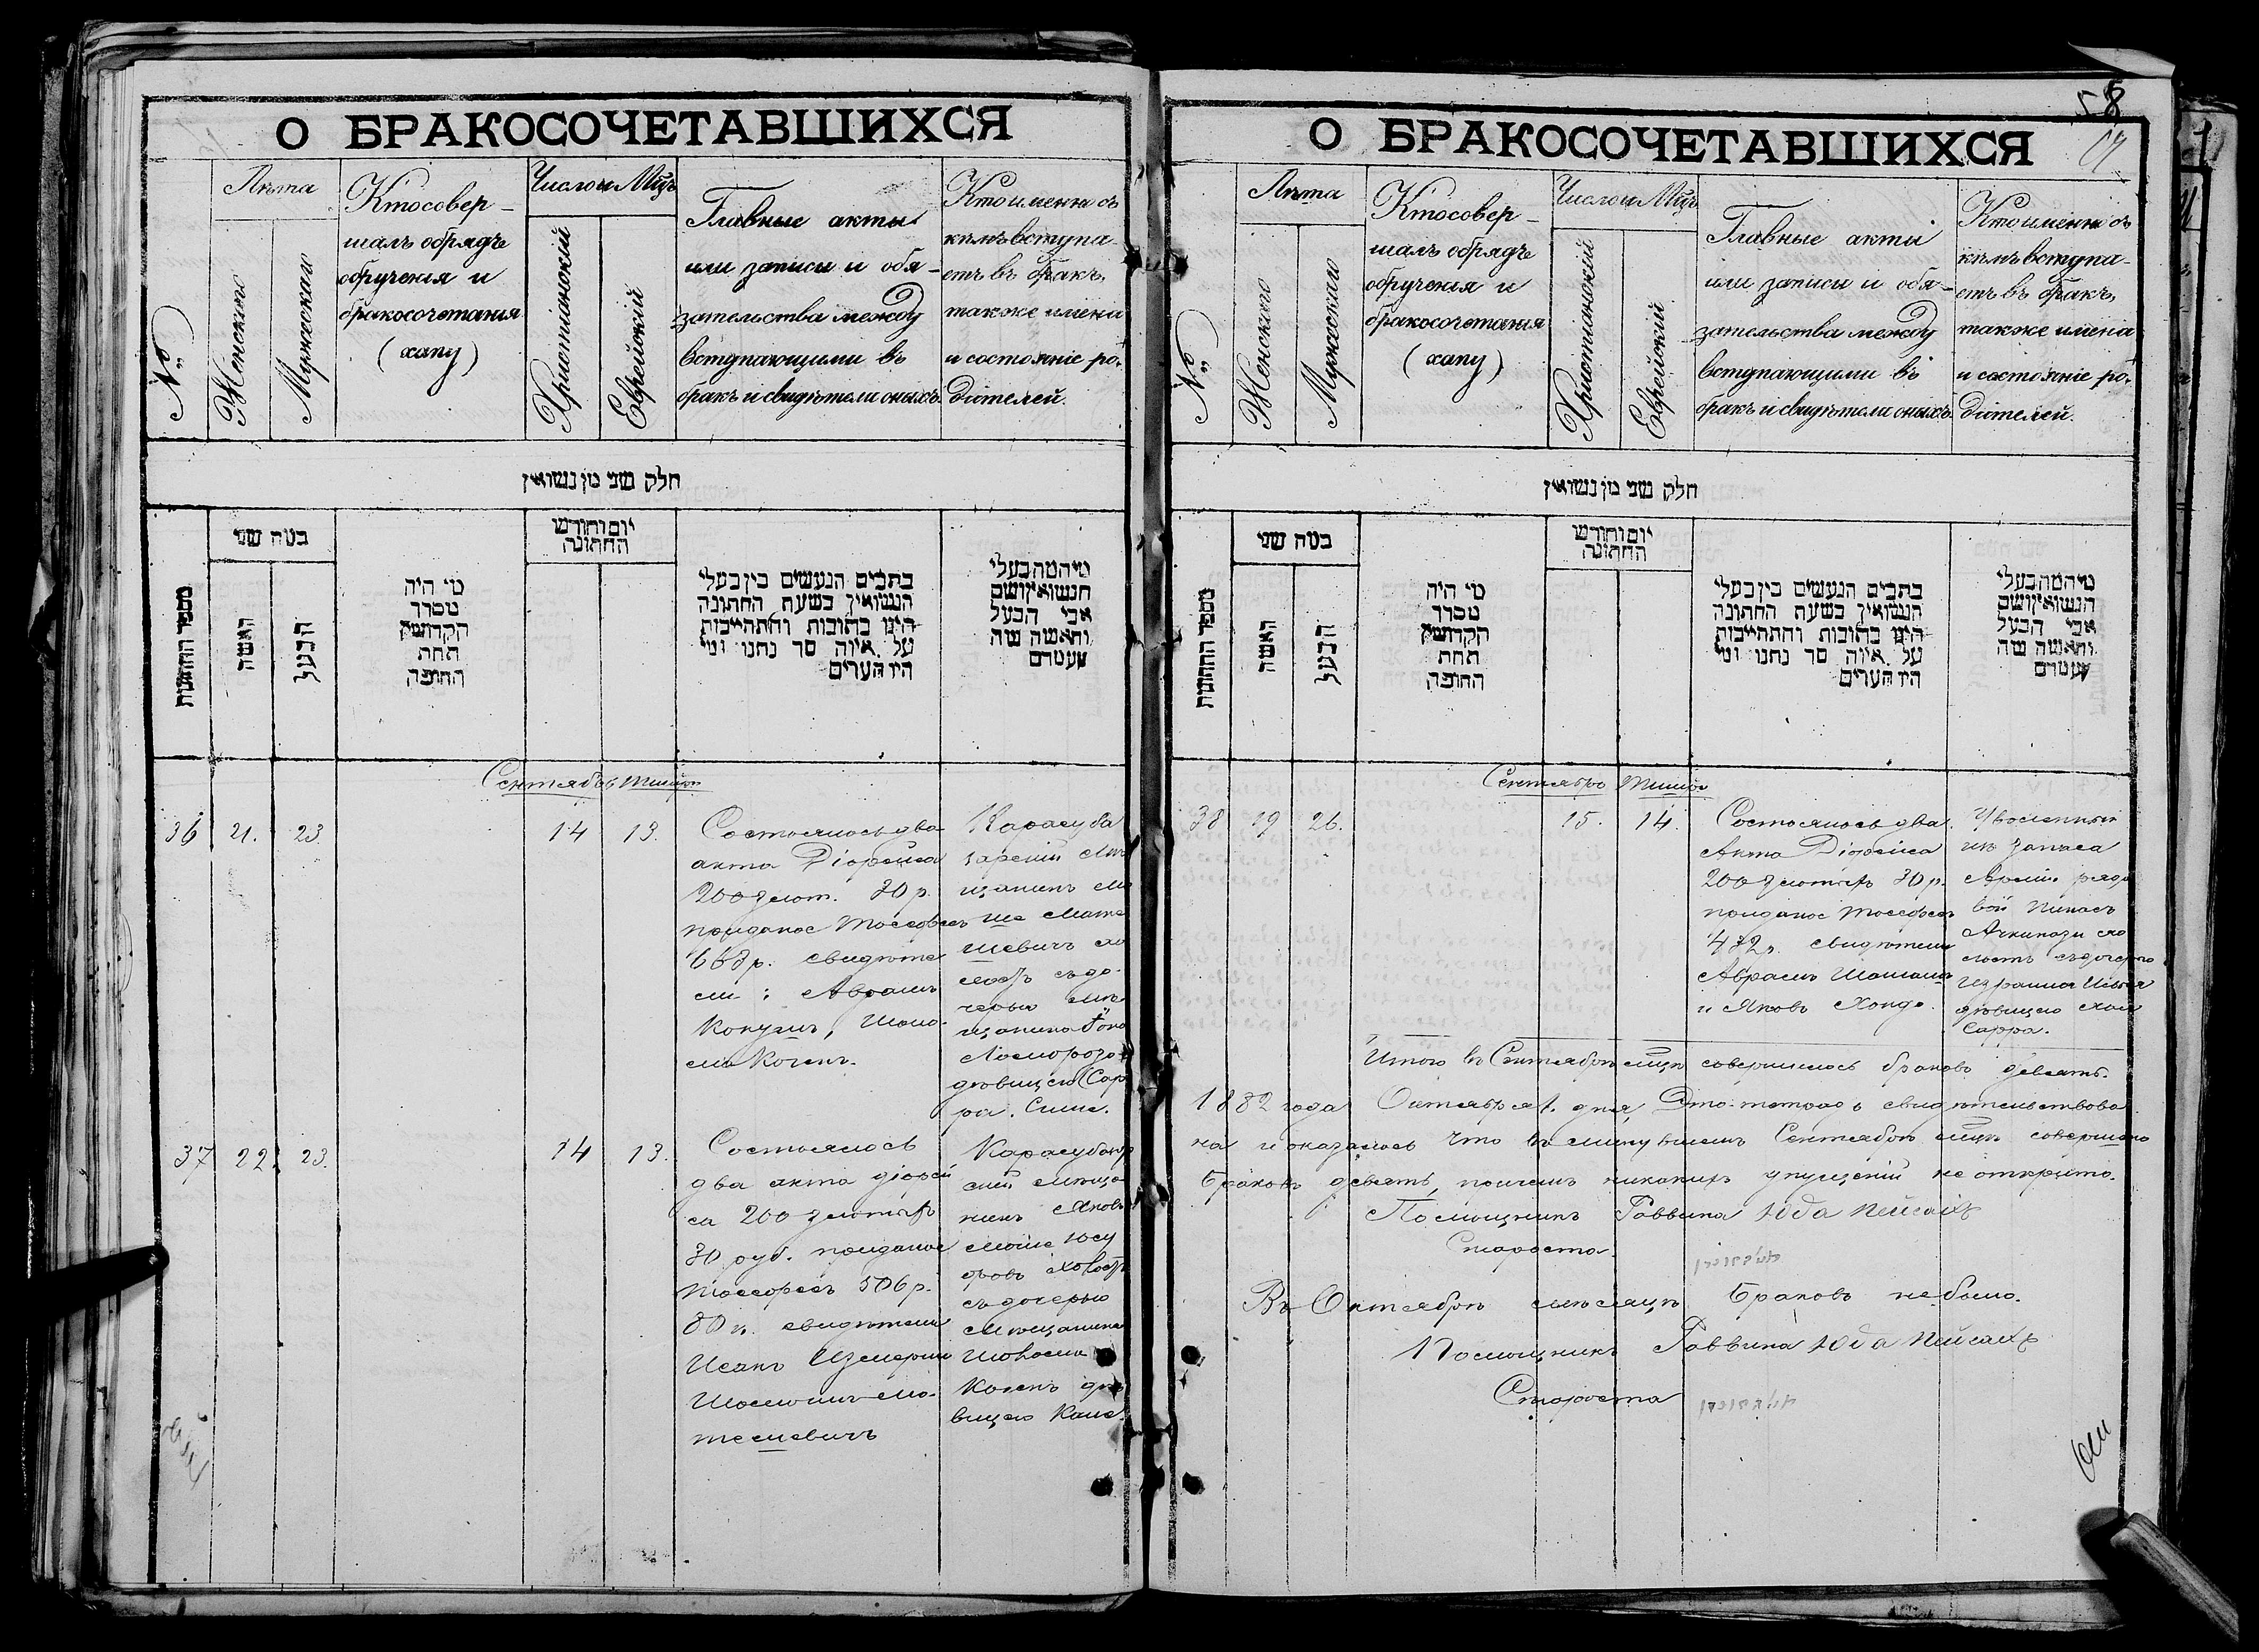 О БРАКОСОЧЕТАВШИХСЯ
№
Лѣта
Женскаго
Мужескаго
Кто совер-
шалъ обрядъ
обрученія и
бракосочетанія
(хапу)
Число и Мѣць
Христіанскій
Еврейскій
Главные акты
или записи и обя-
зательства между
вступающими въ
бракъ и свидѣтели оныхъ.
Кто именно съ
кѣмъ вступа-
етъ въ бракъ,
также имена
и состояніе ро-
дителей.
חלק שני מן נשואין
מספר החתונות
כמה שני
האשה
הבעל
מי היה
מסדר
הקדושין
תחת
החופה
יום וחודש
החתונה
כתבים הנעשים בין בעלי
הנשואין בשעת החתונה
היינו כתובות והתחייבות
על איזה סך נתנו ומי
היו העדים
מי המה בעלי
הנשואין ושם
אבי הבעל
והאשה
Сентябрь Тишри
36 21. 23. 14 13.
Состоялось два
акта Діорейса
200 злот. 30 р.
приданое Тосефесъ
668 р. свидѣте
ли: Аврамъ
Кокушъ, Шоло-
ма Когенъ.
Карасуба
зарскій Мѣ
щанинъ Мо
ше Мате
шевичъ хо
лостъ съ до-
черью мѣ
щанина
дѣвицею Сар
ра.
37 22. 23. 14 13.
Состоялось
два акта діорей
са 200 злотыхъ
30 руб. приданое
Тосефесъ 506 р.
80 к. свидѣтели
Исакъ Измерли
Шоломъ Ма-
тешевичъ
Карасубазар
скій мѣща
нинъ Яковъ
Мойше Юсу
фовъ холостъ
съ дочерью
Мѣщанина
Шолома
Когенъ дѣ
вицею
58
О БРАКОСОЧЕТАВШИХСЯ
№
Лѣта
Женскаго
Мужескаго
Кто совер-
шалъ обрядъ
обрученія и
бракосочетанія
(хапу)
Число и Мѣць
Христіанскій
Еврейскій
Главные акты
или записи и обя-
зательства между
вступающими въ
бракъ и свидѣтели оныхъ.
Кто именно съ
кѣмъ вступа-
етъ въ бракъ,
также имена
и состояніе ро-
дителей.
חלק שני מן נשואין
מספר החתונות
כמה שני
האשה
הבעל
מי היה
מסדר
הקדושין
תחת
החופה
יום וחודש
החתונה
כתבים הנעשים בין בעלי
הנשואין בשעת החתונה
היינו כתובות והתחייבות
על איזה סך נתנו ומי
היו העדים
מי המה בעלי
הנשואין ושם
אבי הבעל
והאשה
Сентябрь Тишри
38 19 26. 15. 14.
Состоялось два
Акта Діорейса
200 злотыхъ 30 р.
приданое Тосефесъ
472 р. свидѣтели
Аврамъ Шоломъ
и Яковъ Хондо.
Уволенный
изъ запаса
Арміи рядо
вой Пинасъ
Ачкинази хо
лостъ съ дочерью
Израиля
дѣвицею Хая
Сарра.
Итого въ Сентябрѣ мѣцѣ совершилось браковъ девять.
1882 года Октября 1. дня, Эта тетрадь свидѣтельствова
на и оказалось что въ минувшемъ Сентябрѣ мѣцѣ совершено
браковъ девять, причемъ никакихъ упущеній не открыто.
Помощникъ Раввина Юда Пейсахъ
Староста
Въ Октябрѣ мѣсяцѣ браковъ не было.
Помощникъ Раввина Юда Пейсахъ
Староста